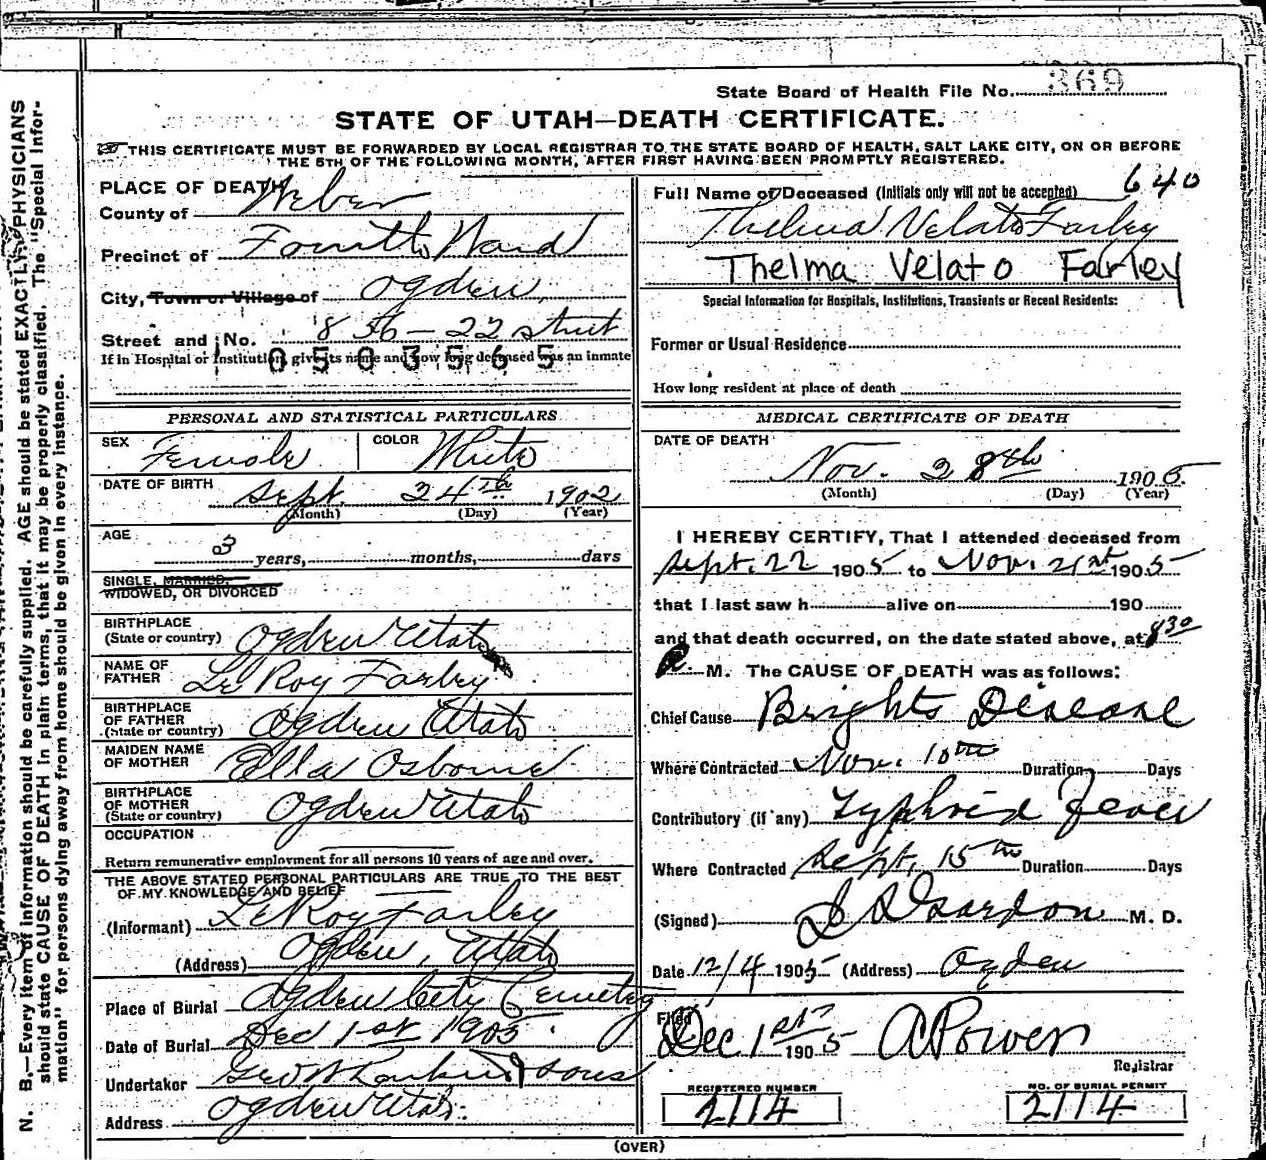 State Board of Health File No. 369
STATE OF UTAH—DEATH CERTIFICATE.
THIS CERTIFICATE MUST BE FORWARDED BY LOCAL REGISTRAR TO THE STATE BOARD OF HEALTH, SALT LAKE CITY, ON OR BEFORE
THE 5TH OF THE FOLLOWING MONTH, AFTER FIRST HAVING BEEN PROMPTLY REGISTERED.
PLACE OF DEATH
County of Weber
Precinct of Fourth Ward
City, Town or Village of Ogden,
Street and No. 856 – 22 street
If in Hospital or Institution, give its name and how long deceased was an inmate
0503565
PERSONAL AND STATISTICAL PARTICULARS
SEX Female COLOR White
DATE OF BIRTH Sept. 24th 1902
(Month) (Day) (Year)
AGE 3 years, months, days
SINGLE, MARRIED,
WIDOWED, OR DIVORCED
BIRTHPLACE
(State or country) Ogden Utah
NAME OF
FATHER Le Roy Farley
BIRTHPLACE
OF FATHER
(State or country) Ogden Utah
MAIDEN NAME
OF MOTHER Ella Osborne
BIRTHPLACE
OF MOTHER
(State or country) Ogden Utah
OCCUPATION
Return remunerative employment for all persons 10 years of age and over.
THE ABOVE STATED PERSONAL PARTICULARS ARE TRUE TO THE BEST
OF MY KNOWLEDGE AND BELIEF
(Informant) LeRoy Farley
(Address) Ogden, Utah
Place of Burial Ogden City Cemetery
Date of Burial Dec 1st 1905
Undertaker Geo W Larkin & Sons
Address Ogden Utah.
640
Full Name of Deceased (Initials only will not be accepted)
Thelma Velato Farley
Thelma Velato Farley
Special Information for Hospitals, Institutions, Transients or Recent Residents:
Former or Usual Residence
How long resident at place of death
MEDICAL CERTIFICATE OF DEATH
DATE OF DEATH
Nov. 28th 1905.
(Month) (Day) (Year)
I HEREBY CERTIFY, That I attended deceased from
Sept. 22 1905 to Nov. 21st 1905
that I last saw h alive on 190
and that death occurred, on the date stated above, at 830
M. The CAUSE OF DEATH was as follows:
Chief Cause Brights Disease
Where Contracted Nov. 10th Duration Days
Contributory (if any) Typhoid Fever
Where Contracted Sept. 15th Duration Days
(Signed) M. D.
Date 12/4 1905 (Address) Ogden
Filed
Dec 1st 1905 A Power
Registrar
REGISTERED NUMBER
2114
NO. OF BURIAL PERMIT
2114
(OVER)
N. B.—Every item of information should be carefully supplied. AGE should be stated EXACTLY. PHYSICIANS
should state CAUSE OF DEATH in plain terms, that it may be properly classified. The "Special Infor-
mation" for persons dying away from home should be given in every instance.